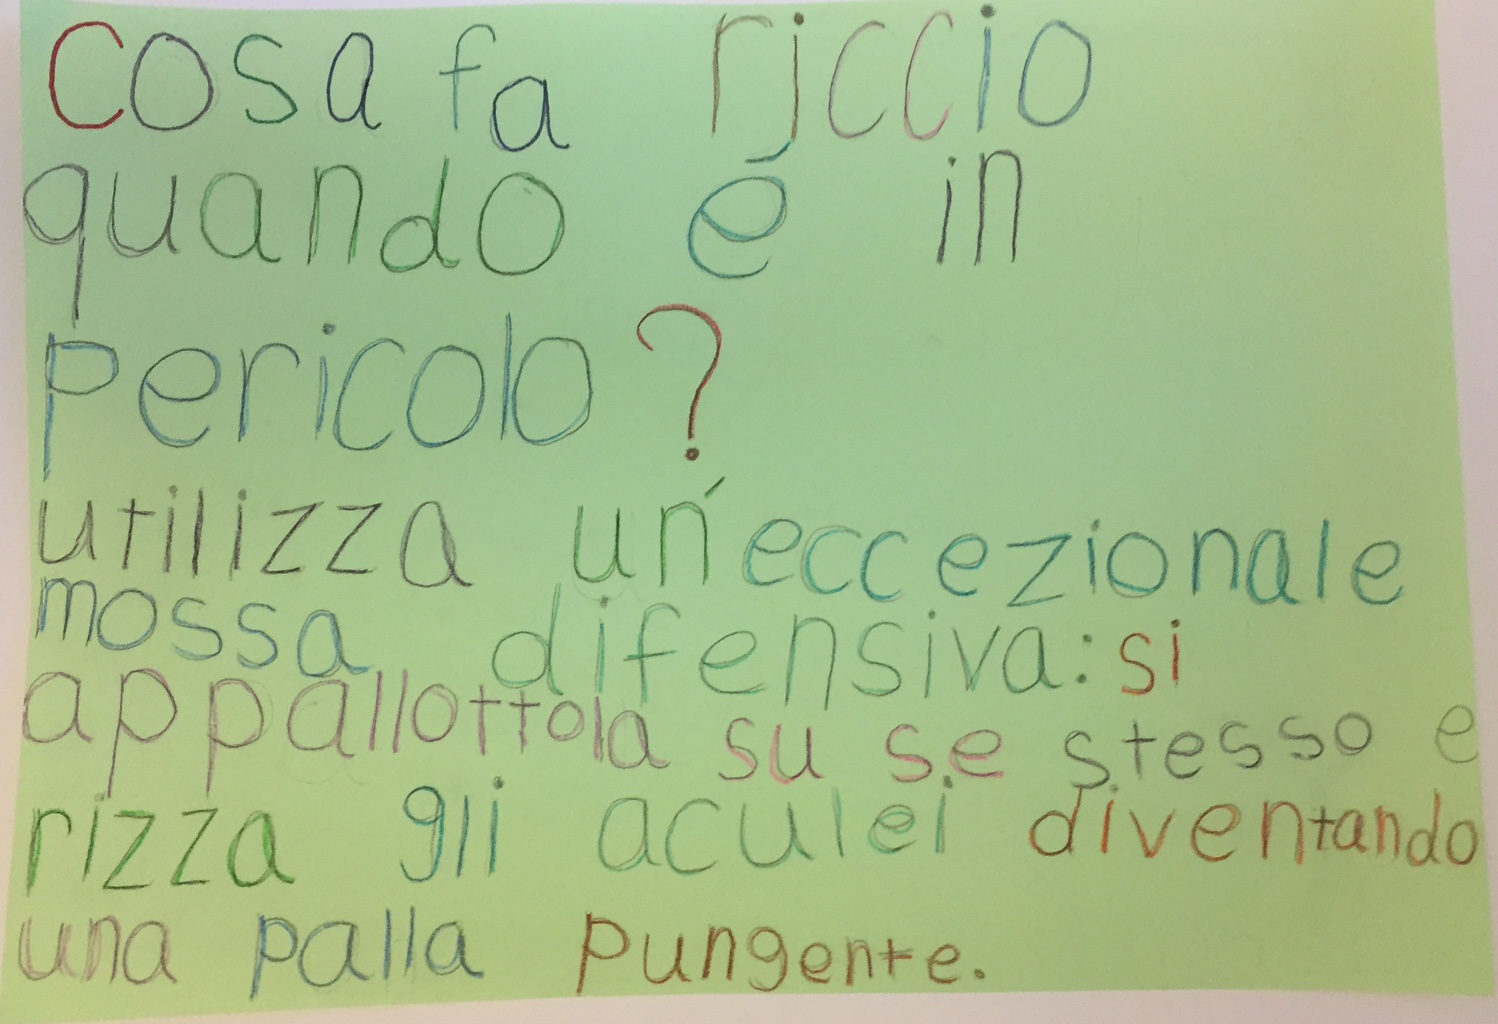 Cosa fa riccio
quando é in
pericolo?
utilizza un'eccezionale
mossa difensiva: si
appallottola su se stesso e
rizza gli aculei diventando
una palla pungente.